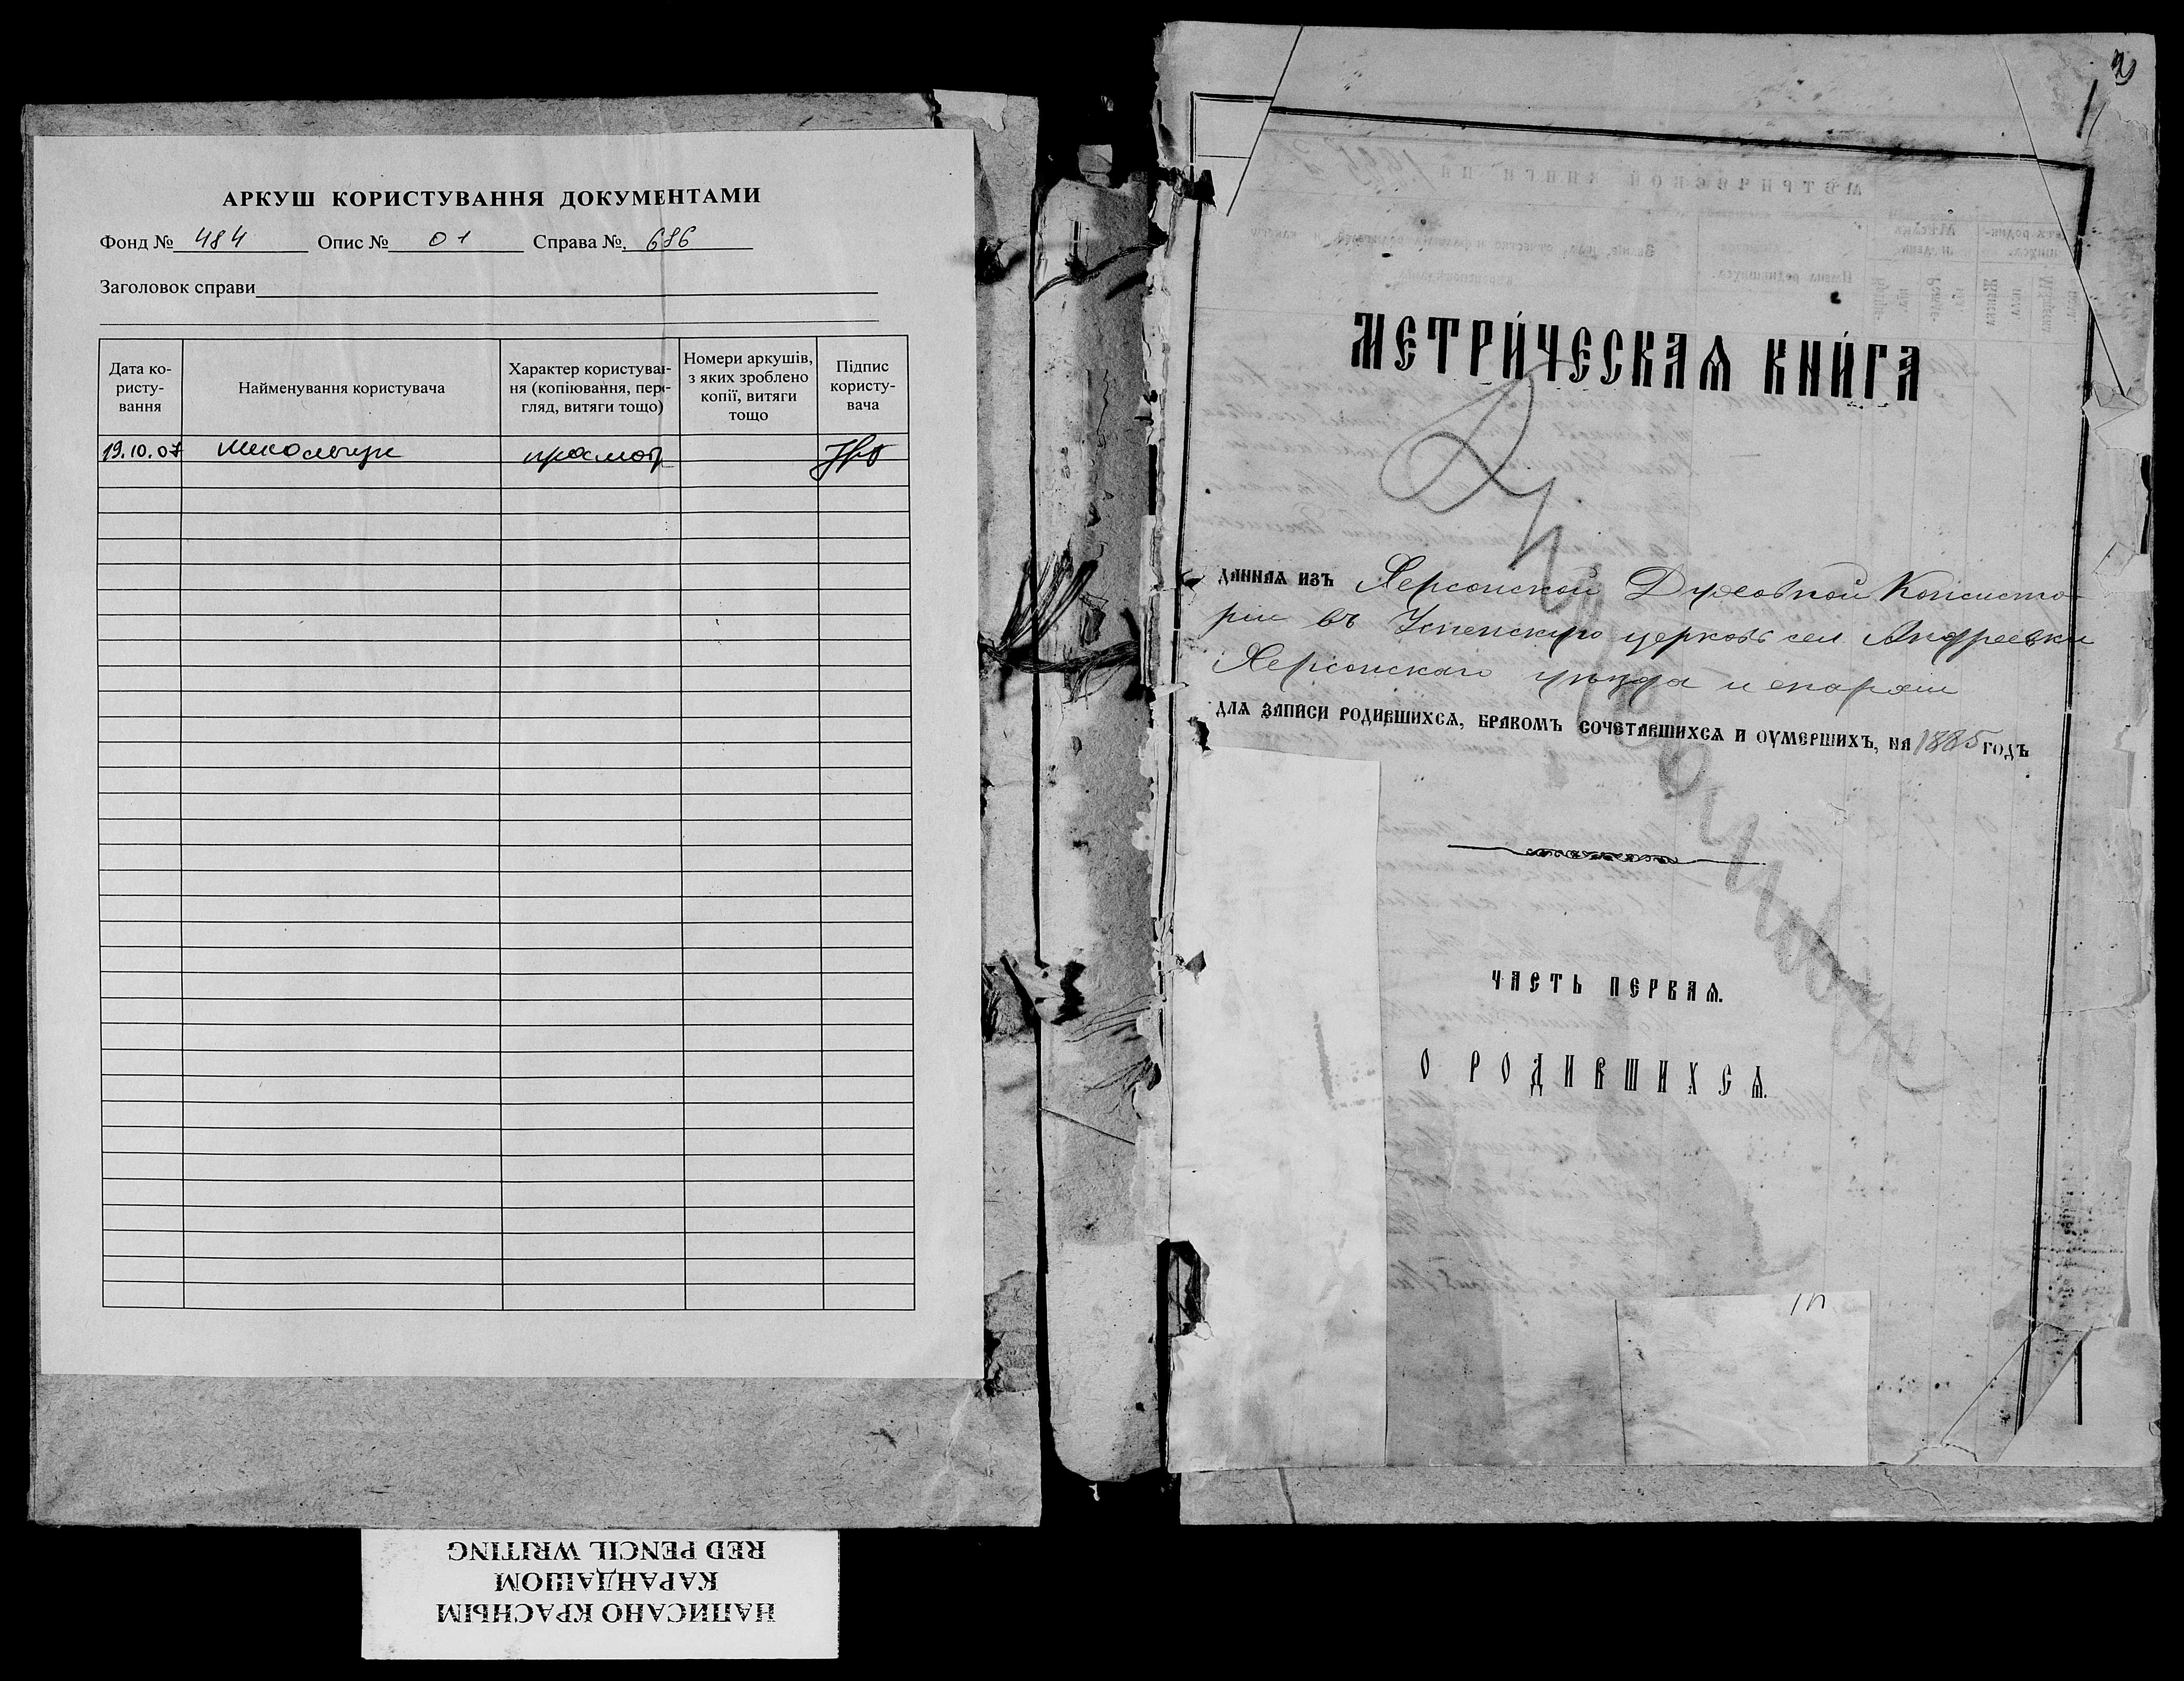 АРКУШ КОРИСТУВАННЯ ДОКУМЕНТАМИ
Фонд № 484 Опис № 01 Справа № 686
Заголовок справи
Дата ко-
ристу-
вання
Найменування користувача
Характер користуван-
ня (копіювання, пере-
гляд, витяги тощо)
Номери аркушів,
з яких зроблено
копії, витяги
тощо
Підпис
користу-
вача
19.10.07 просмотр
НАПИСАНО КРАСНЫМ
КАРАНДАШОМ
RED PENCIL WRITING
2
1
МЕТРИ́ЧЕСКАѦ КНИ́ГА
даннаѧ изъ Херсонской Духовной Консисто-
ріи въ Успенскую церковь сел. Андреевки
Херсонскаго уѣзда и епархіи
для записи родившихсѧ, бракомъ сочетавшихсѧ и оумершихъ, на 1885 годъ
ЧАСТЬ ПЕРВАѦ.
О РОДИВШИХСѦ.